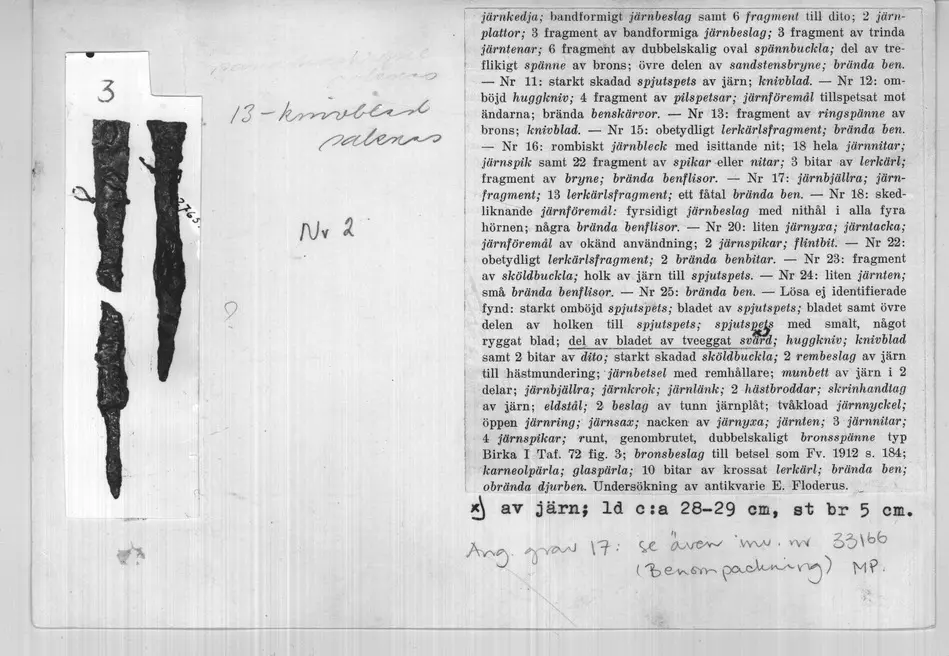 3
2765
13-knivblad
saknas
Nr 2
?
järnkedja; bandformigt järnbeslag samt 6 fragment till dito; 2 järn-
plattor; 3 fragment av bandformiga järnbeslag; 3 fragment av trinda
järntenar; 6 fragment av dubbelskalig oval spännbuckla; del av tre-
flikigt spänne av brons; övre delen av sandstensbryne; brända ben.
— Nr 11: starkt skadad spjutspets av järn; knivblad. — Nr 12: om-
böjd huggkniv; 4 fragment av pilspetsar; järnföremål tillspetsat mot
ändarna; brända benskärvor. — Nr 13: fragment av ringspänne av
brons; knivblad. — Nr 15: obetydligt lerkärlsfragment; brända ben.
— Nr 16: rombiskt järnbleck med isittande nit; 18 hela järnnitar;
järnspik samt 22 fragment av spikar eller nitar; 3 bitar av lerkärl;
fragment av bryne; brända benflisor. — Nr 17: järnbjällra; järn-
fragment; 13 lerkärlsfragment; ett fåtal brända ben. — Nr 18: sked-
liknande järnföremål: fyrsidigt järnbeslag med nithål i alla fyra
hörnen; några brända benflisor. — Nr 20: liten järnyxa; järntacka;
järnföremål av okänd användning; 2 järnspikar; flintbit. — Nr 22:
obetydligt lerkärlsfragment; 2 brända benbitar. — Nr 23: fragment
av sköldbuckla; holk av järn till spjutspets. — Nr 24: liten järnten;
små brända benflisor. — Nr 25: brända ben. — Lösa ej identifierade
fynd: starkt omböjd spjutspets; bladet av spjutspets; bladet samt övre
delen av holken till spjutspets; spjutspets med smalt, något
ryggat blad; del av bladet av tveeggat svärd; huggkniv; knivblad
samt 2 bitar av dito; starkt skadad sköldbuckla; 2 rembeslag av järn
till hästmundering; järnbetsel med remhållare; munbett av järn i 2
delar; järnbjällra; järnkrok; järnlänk; 2 hästbroddar; skrinhandtag
av järn; eldstål; 2 beslag av tunn järnplåt; tvåkload järnnyckel;
öppen järnring; järnsax; nacken av järnyxa; järnten; 3 järnnitar;
4 järnspikar; runt, genombrutet, dubbelskaligt bronsspänne typ
Birka I Taf. 72 fig. 3; bronsbeslag till betsel som Fv. 1912 s. 184;
karneolpärla; glaspärla; 10 bitar av krossat lerkärl; brända ben;
obrända djurben. Undersökning av antikvarie E. Floderus.
x) av järn; ld c:a 28-29 cm, st br 5 cm.
Ang. grav 17: se även inv. nr 33166
(Benompackning) MP.